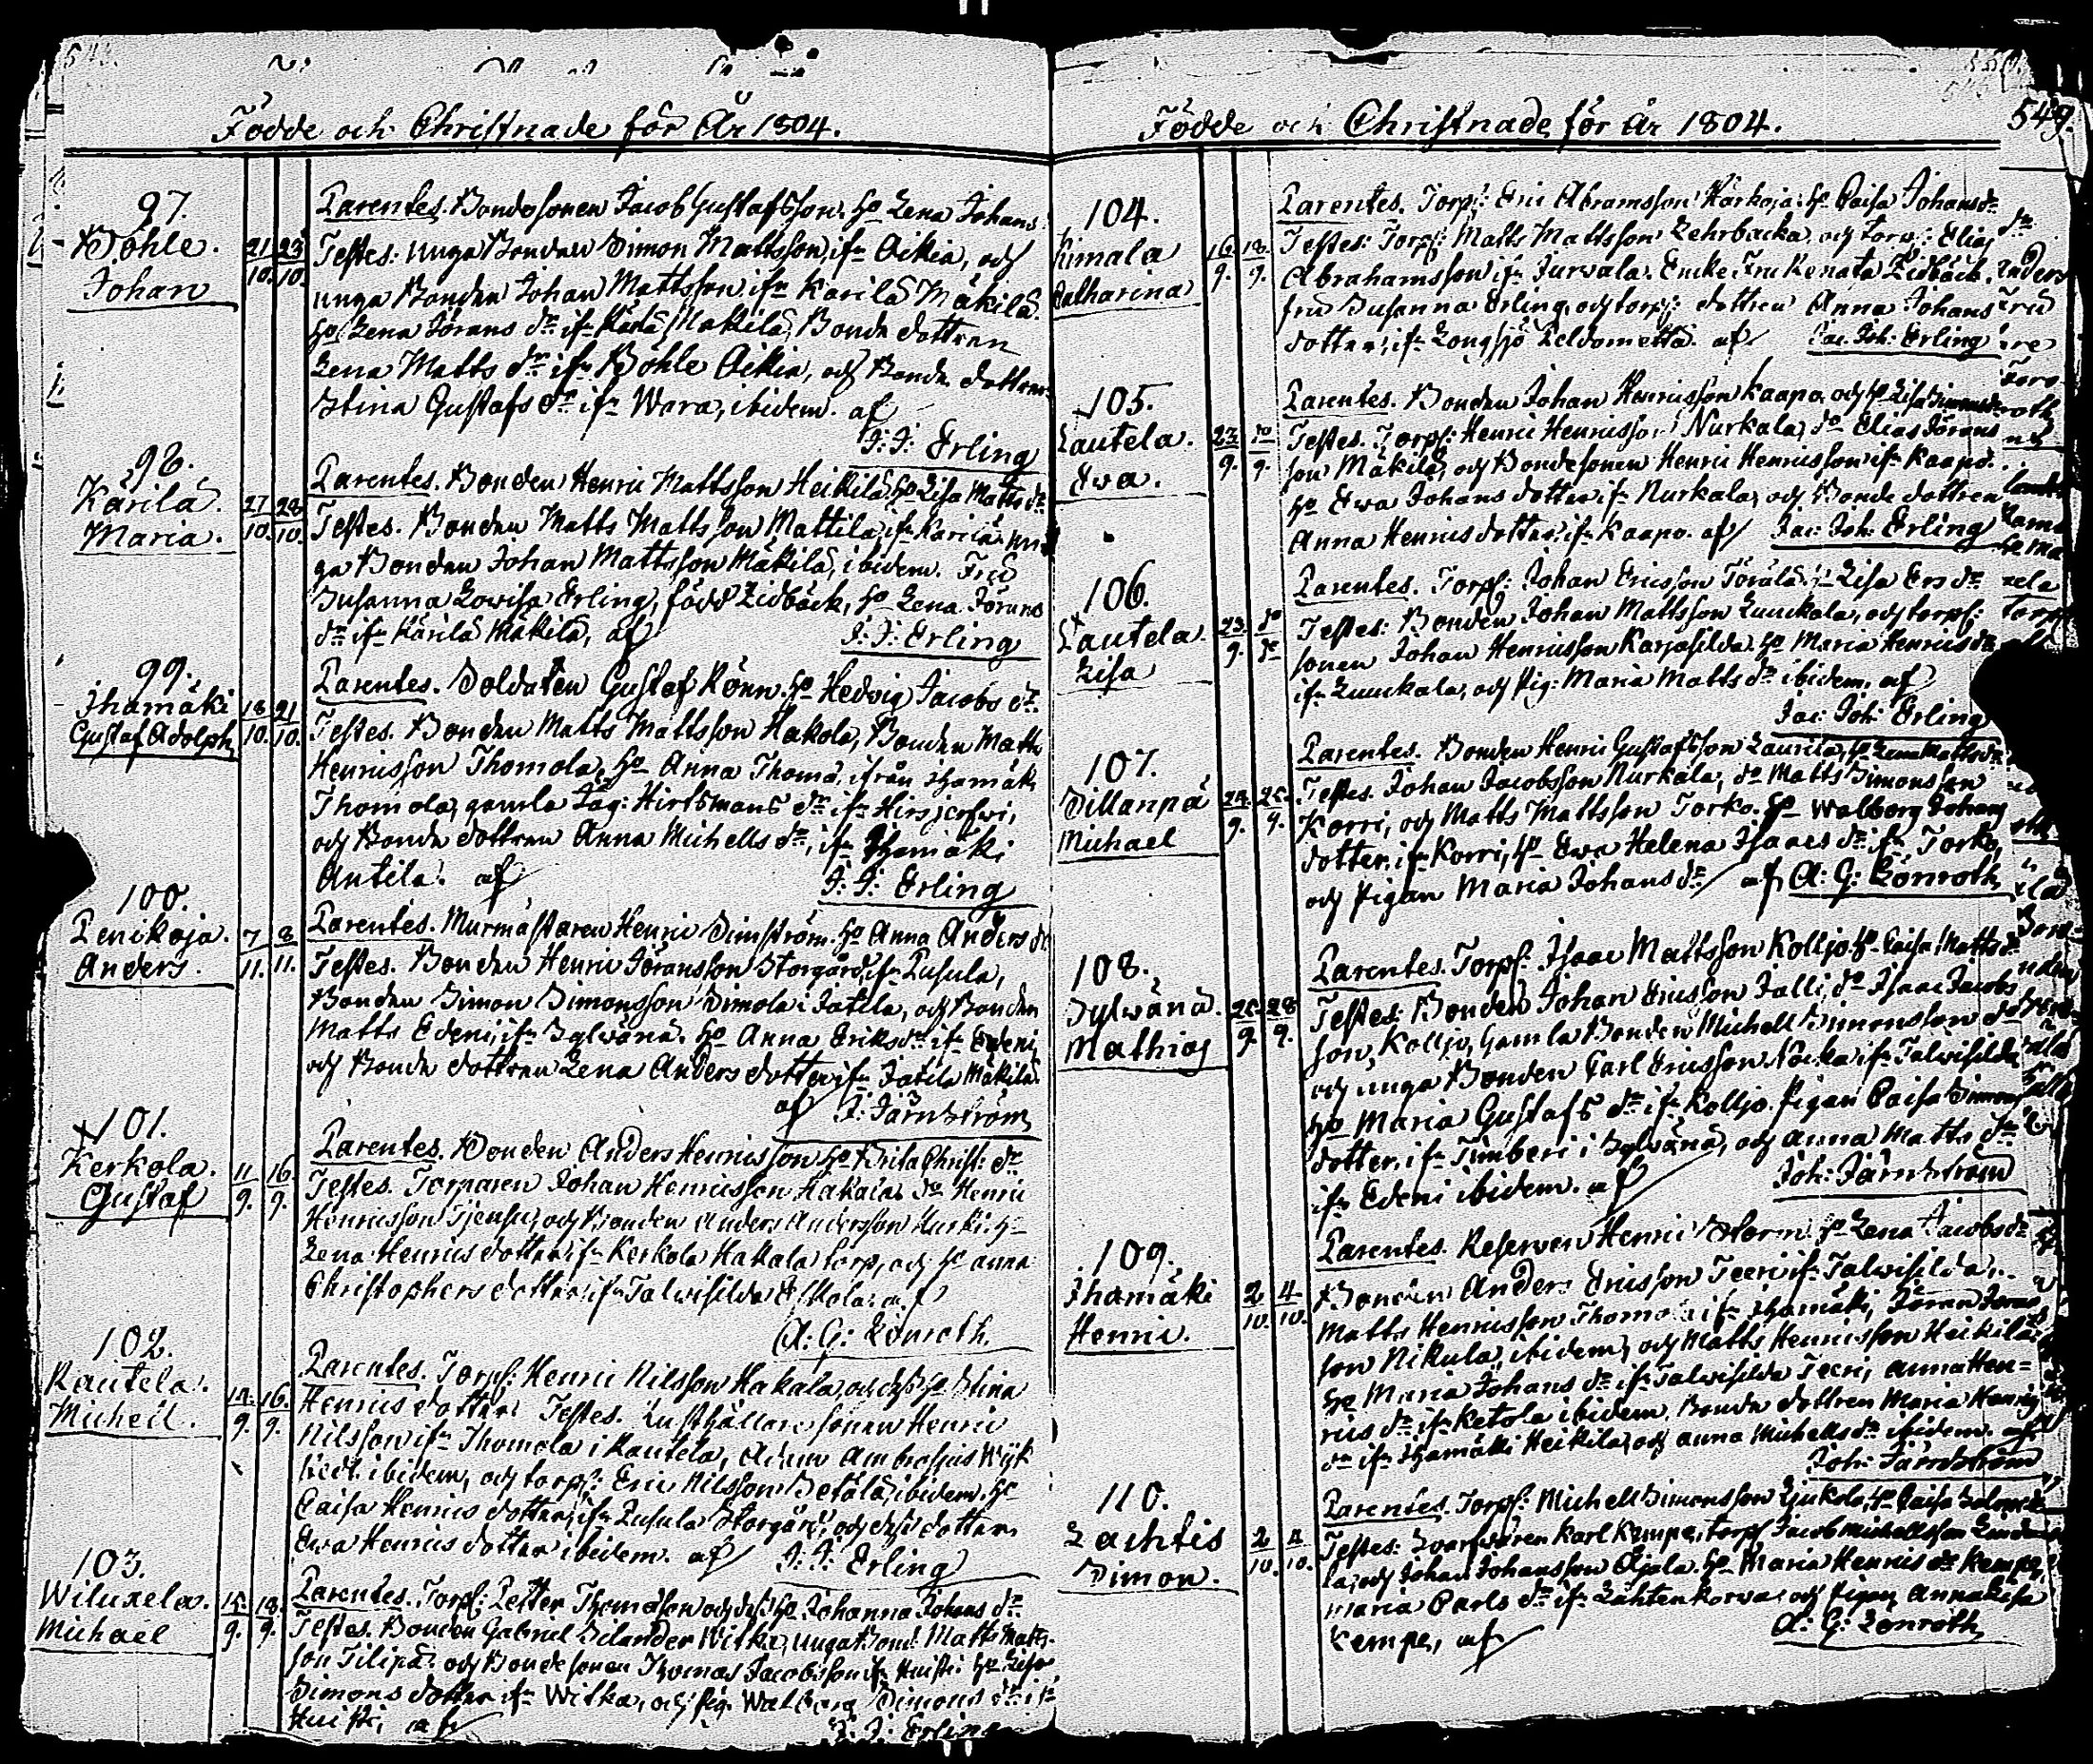 Födde och Christnade för År 1804.
97.
Böhle.
Johan
21 23
10. 10.
Parentes. Bondesonen Jacob Gustafsson. H. Lena Johans
Testes: unga Bonden Simon Mattsson, ifn Äikiä, och
unga Bonden Johan Mattsson ifn Karila Mäkilä.
Ho Lena Görans dr ifn Kärilä Mäkilä, Bonde dottren
Lena Matts dr ifn Böhle Äikiä, och Bonde dottren
Stina Gustafs dr ifn Wara, ibidem. af
J: J: Erling
98.
Kärilä.
Maria.
27 28
10. 10.
Parentes. Bonden Henric Mattsson Heikilä Ho Lisa Matts dr
Testes. Bonden Matts Mattsson Mattila, ifn Kärilä un
ga Bonden Johan Mattsson Mäkilä, ibidem. Fru
Susanna Lovisa Erling, född Lidbäck, Ho Lena Görans
dr ifn Kärilä Mäkilä, af J: J: Erling
99.
Ihamäki
Gustaf Adolph
18 21
10. 10.
Parentes. Soldaten Gustaf Rönn. Ho Hedvig Jacobs dr.
Testes. Bonden Matts Mattsson Hakola, Bonden Matts
Henricsson Thomola, Ho Anna Thoma, ifrån Ihamäki
Thomola, gamla Jäg: Hirtsmans dr ifn
och Bonde dottren Anna Michells dr, ifn Ihamäki
Antila. af J: J: Erling
100.
Penikoja.
Anders.
7 8
11. 11.
Parentes. Murmästaren Henric Simström. Ho Anna Anders dr
Testes. Bonden Henric Göransson Storgård ifn Pusula,
Bonden Simon Simonsson Simola i Jatila, och Bonden
Matts Edeni, ifn Sylwänä. Ho Anna Eriks dr ifn Edeni,
och Bonde dottren Lena Anders dotter ifn Jatila Mäkilä.
af J: Järnström
101.
Kerkola.
Gustaf
11 16
9. 9.
Parentes. Bonden Anders Henricsson Ho Brita Christ: dr
Testes. Torparen Johan Henricsson Hakala, do Henric
Henricsson och Bonden Anders Andersson Kurki. Ho
Lena Henrics dotter, ifn Kerkola Hakala torp, och Ho Anna
Christophers dotter, ifn Talwisilda Eskola. af
A: G: Lönroth.
102.
Rautela.
Michell.
14. 16.
9. 9.
Parentes. Torp: Henric Nilsson Hakala, och dess Ho Stina
Henrics dotter. Testes. Rusthållare sonen Henric
Nilsson ifn Thomola i Rautela, Adam Ambrosius Wijk
stedt ibidem, och torp: Eric Nilsson Setälä, ibidem. Ho
Caisa Henrics dotter, ifn Pusula Storgård, och dess dotter
Ewa Henrics dotter ibidem. af J: J: Erling
103.
Wiluxela.
Michael
15. 18.
9. 9.
Parentes. Torp: Petter Thomasson och dess Ho Johanna Johans dr
Testes. Bonden Gabriel Selander Witka, unga Bond: Matts Matts-
son Filipä. och Bondesonen Thomas Jacobsson ifn Huisti. Ho Lisa
Simons dotter ifn Witka, och Pig. Walborg Simons dr ifn
Huisti, af J: J: Erling
Födde och Christnade för År 1804.
549.
104.
Kimala
Catharina
16. 18.
9. 9.
Parentes. Torp: Eric Abramsson Härkoja. Ho Caisa Johans dr
Testes: Torp: Matts Mattsson Lehrbacka, och torp: Elias
Abrahamsson ifn Jurvala. Encke Fru Renata Lidbäck.
fru Susanna Erling, och torp: dottren Anna Johans
dotter, ifn Longsjö Peldometta. af Jac: Joh: Erling
105.
Lautela.
Ewa.
23 30
9. 9.
Parentes. Bonden Johan Henricsson Kaapo, och Ho Lisa Simons dr
Testes. Torp: Henric Henricsson Nurkala, do Elias Görans
son Mäkilä, och Bondesonen Henric Henricsson ifn Kaapo.
Ho Ewa Johans dotter ifn Nurkala, och Bonde dottren
Anna Henrics dotter, ifn Kaapo. af Jac: Joh: Erling
106.
Lautela.
Lisa
23. do
9. do
Parentes. Torp: Johan Ericsson Törälä. Ho Lisa Ers dr
Testes: Bonden Johan Mattsson Luuckala, och torp:
sonen Johan Henricsson Karjosilda. Ho Maria Henrics dr
ifn Luuckala, och Pig: Maria Matts dr ibidem. af
Jac: Joh: Erling
107.
Sillanpä
Michael
24. 25.
9. 9.
Parentes. Bonden Henric Gustafsson Laurila, Ho Lena Matts dr
Testes. Johan Jacobsson Nurkala, do Matts Simonsson
Korri, och Matts Mattsson Torko. Ho Walborg Johans
dotter, ifn Korri, Ho Ewa Helena Isaacs dr ifn Torko,
och Pigan Maria Johans dr af A: G: Lönroth
108.
Sylwänä.
Mathias
25. 28
9. 9.
Parentes. Torp: Isaac Mattsson Kolljo. Ho Caisa Matts dr
Testes: Bonden Johan Ericsson Jalli, do Isaac Jacobs
son, Kolljo, Gamla Bonden Michell Simonsson
och unga Bonden Carl Ericsson Nocka ifn Talwisilda
Ho Maria Gustafs dr ifn Kolljo. Pigan Caisa Simons
dotter, ifn Timberi i Sylwänä, och Anna Matts dr
ifn Edeni ibidem. af Joh: Järnström
109.
Ihamäki
Henric.
2 4
10. 10.
Parentes. Reserven Henric Storm. Ho Lena Jacobs dr
Bonden Anders Ericsson Teeri ifn Talwisilda.
Matts Henricsson Thomola ifn Ihamäki, Göran Görans
son Nikula, ibidem, och Matts Henricsson Heikilä
Ho Maria Johans dr ifn Talwisilda Teeri, Anna Hen=
rics dr ifn Ketola ibidem. Bonde dottren Maria Henrics
dr ifn Ihamäki Heikilä, och Anna Michells dr ibidem. af
Joh: Järnström
110.
Lachtis
Simon.
2 4
10. 10.
Parentes. Torp: Michell Simonsson Ljukola, Ho Caisa
Testes: Karl Kempe, torp: Jacob Michellsson
la, och Johan Johansson Ojala. Ho Maria Henrics dr Kempe,
Maria Carls dr ifn Lähtenkorwa, och Pigan Anna Lisa
Kempe, af A: G: Lönroth